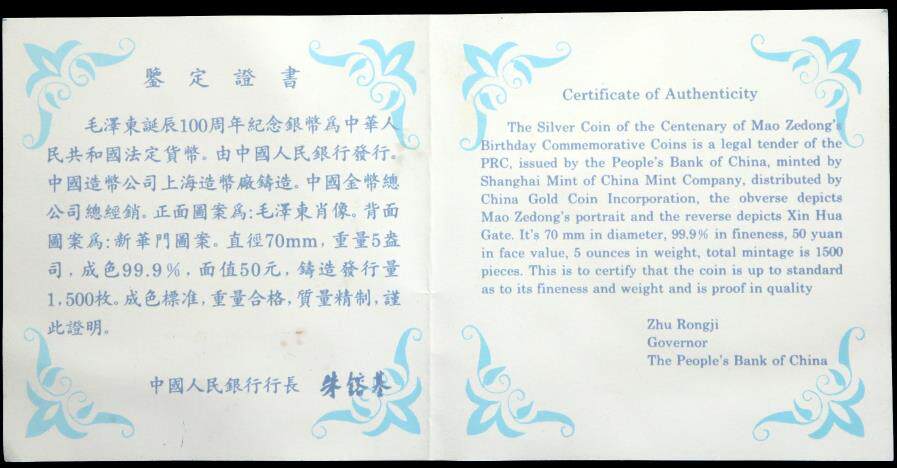 鑒定證書
毛澤東誕辰100周年紀念銀幣爲中華人
民共和國法定貨幣。由中國人民銀行發行。
中國造幣公司上海造幣廠鑄造。中國金幣總
公司總經銷。正面圖案爲:毛澤東肖像。背面
圖案爲:新華門圖案。直徑70mm,重量5盎
司,成色99.9%,面值50元,鑄造發行量
1,500枚。成色標准,重量合格,質量精制,謹
此證明。
中國人民銀行行長 朱鎔基
Certificate of Authenticity
The Silver Coin of the Centenary of Mao Zedong's
Birthday Commemorative Coins is a legal tender of the
PRC, issued by the People's Bank of China, minted by
Shanghai Mint of China Mint Company, distributed by
China Gold Coin Incorporation, the obverse depicts
Mao Zedong's portrait and the reverse depicts Xin Hua
Gate. It's 70 mm in diameter, 99.9% in fineness, 50 yuan
in face value, 5 ounces in weight, total mintage is 1500
pieces. This is to certify that the coin is up to standard
as to its fineness and weight and is proof in quality
Zhu Rongji
Governor
The People's Bank of China